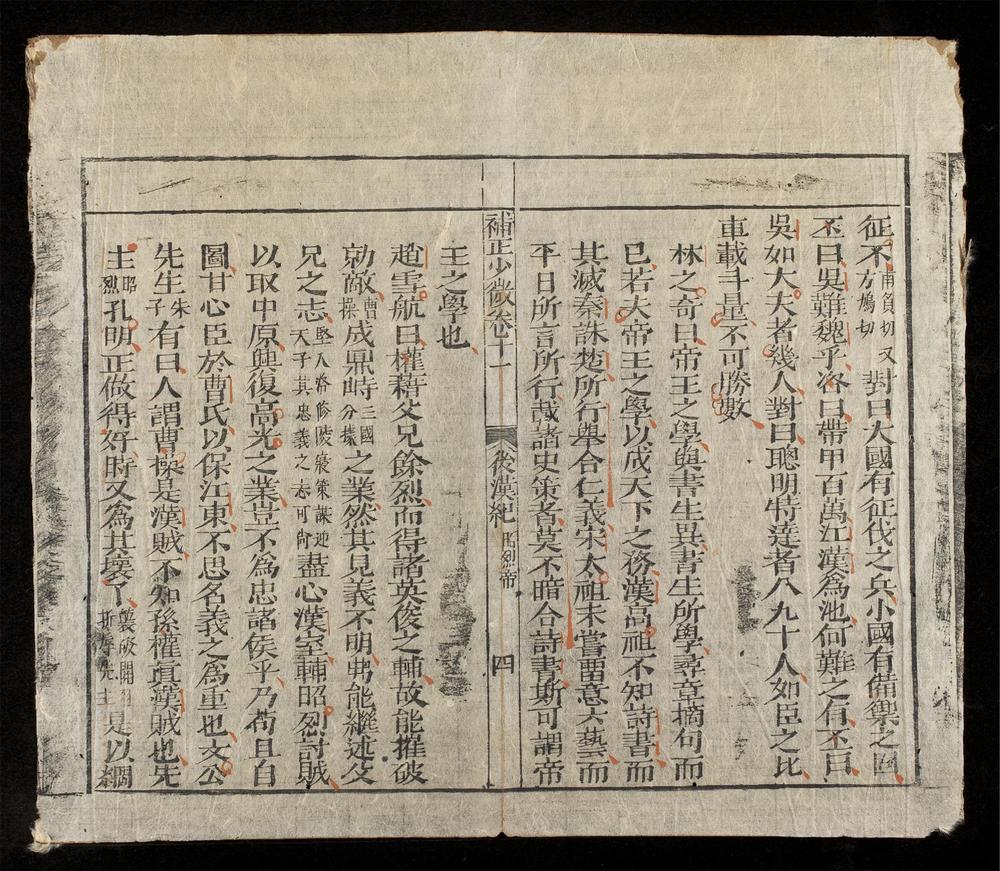 征不甫負切又方鳩切對曰大國有征伐之兵小國有備禦之固
丕曰吳難魏乎咨曰帶甲百萬江漢爲池何難之有丕曰
吳如大夫者幾人對曰聰明特達者八九十人如臣之比
車載斗量不可勝數
林之奇曰帝王之學與書生異書生所學尋章摘句而
已若夫帝王之學以成天下之務漢高祖不知詩書而
其滅秦誅楚所行舉合仁義宋太祖未嘗畱意六藝而
平日所言所行載諸史策者莫不暗合詩書斯可謂帝
補正少微卷十一 後漢紀 昭烈帝 四
王之學也
趙雪航曰權藉父兄餘烈而得諸英俊之輔故能摧破
勍敵曹操成鼎峙三國分據之業然其見義不明弗能繼述父
兄之志堅入洛修陵寢策謀迎天子其忠義之志可尚盡心漢室輔昭烈討賊
以取中原興復高光之業豈不爲忠諸侯乎乃苟且自
圖甘心臣於曹氏以保江東不思名義之爲重也文公
先生朱子有曰人謂曹操是漢賊不知孫權眞漢賊也先
主昭烈孔明正做得好時又爲其壞了襲破關羽 是以綱